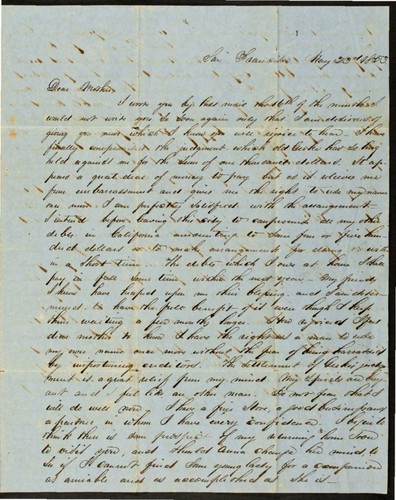 San Francisco May 23rd 1853
Dear Mother
I wrote you by last mail the 16th of the month & I
would not write you so soon again only that I am desirous of
giving you news which I know you will rejoice to hear. I have
finally compromised the judgment which old has so long
held against me for the sum of one thousand dollars. It ap-
pears a great deal of money to pay but as it relieves me
from embarrassment and gives me the right to use my name
as mine I am perfectly satisfied with the arrangement.
I intend before leaving this city to compromise all my other
debts in California amounting to some four or five hun
dred dollars or to make arrangements for doing so
in a short time. The debts which I owe at home I shall
pay in full some time within the next year. My friends
there have heaped upon me this blessing and I am deter-
mined to have the full benefit of it even though I keep
them waiting a few months longer. rejoiced
dear mother to know I have the right as a man to use
my own name once more without the fear of being harassed
by importuning creditors. The settlement of judg-
ment is a great relief from my mind. My spirits are buoy-
ant and I feel like an other man. Do not fear that I
will do well now. I have a fine store, a good business and
a partner in whom I have every confidence.
think there is some prospect of my returning home soon
to visit you, and should Anna change her mind to
I cannot find some young lady for a companion
as amiable and as accomplished as she is